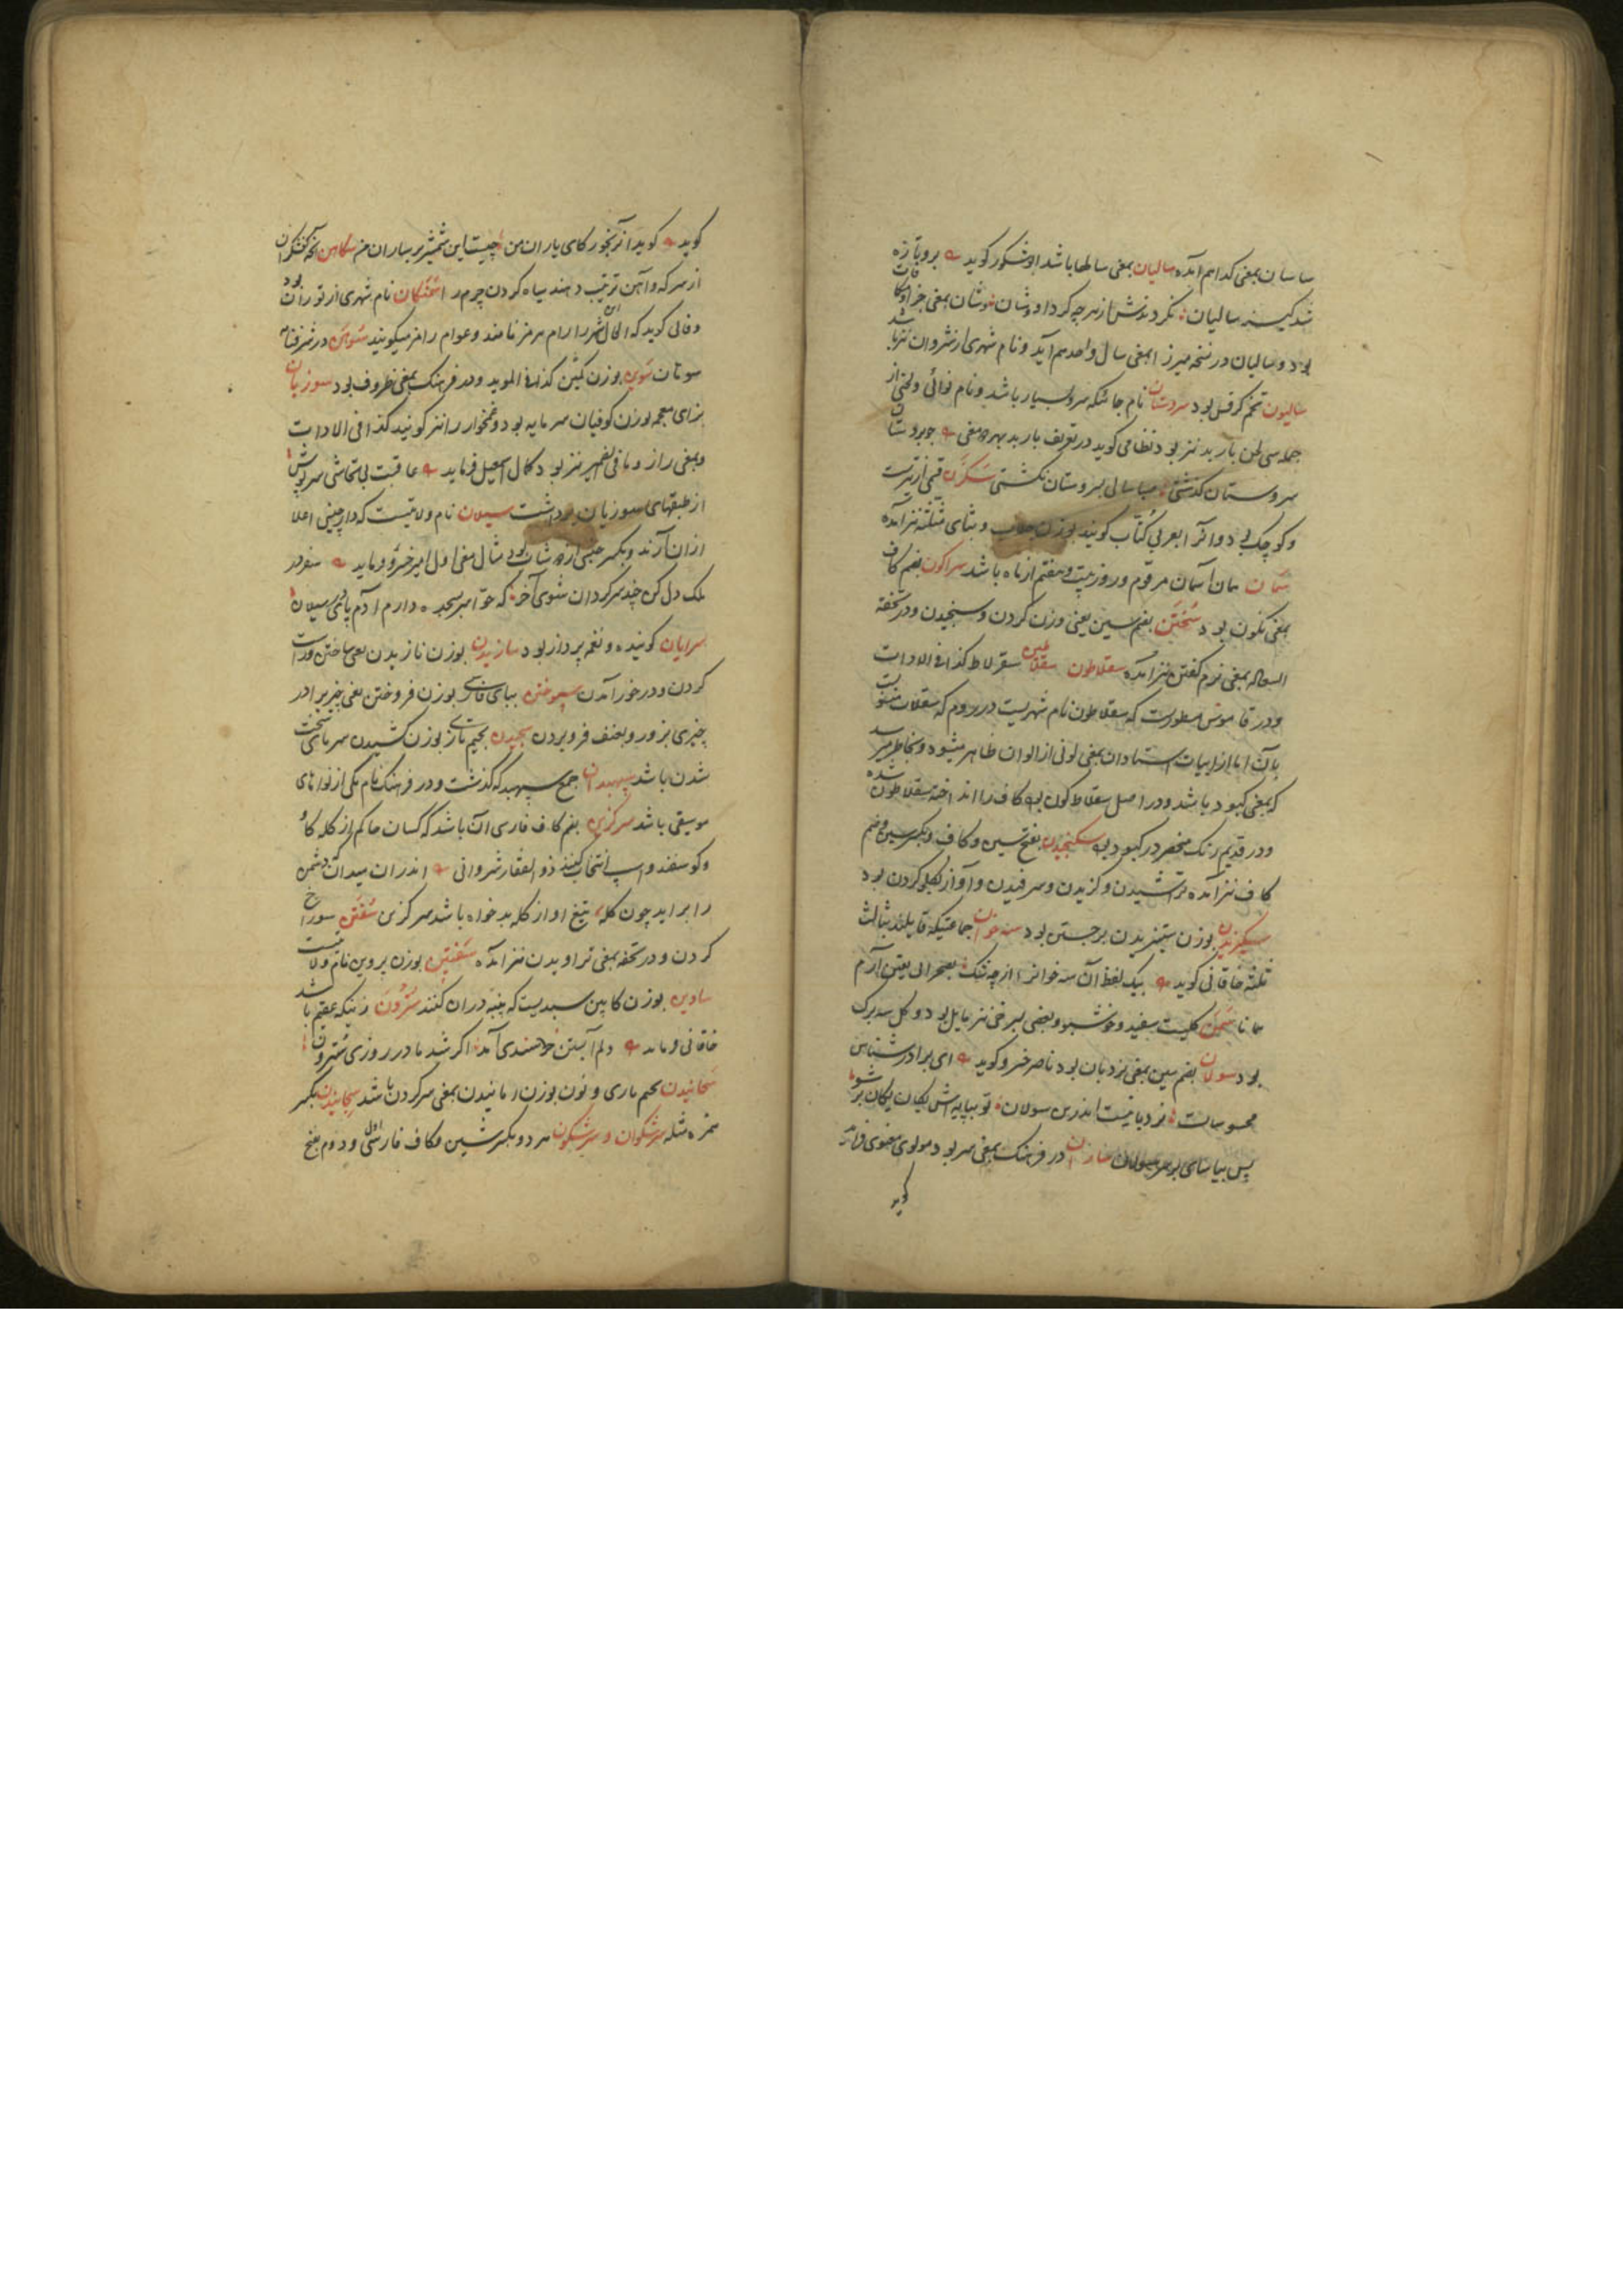 ساسان بمعنی کدا هم آمده سالیان بمعنی سالها باشد ابوشکور کوید بروتازه
شد کینه سالیان نکردندش از هرچه کرد او
بود و سالیان در نسخه میرزا بمعنی سال واحد هم آید و نام شهری از شروان نیز باشد
سالیون تخم کرفس بود سروستان نام جائیکه سرو بسیار باشد و نام نوائی ولحنی از
جمله سی لحن باربد نیز بود نظامی کوید در تعریف باربد
سروستان کذشتی صبا سالی بسروستان نکشتی
وکوچک بی دو آنرا بعربی کتاب کویند بوزن و بثای مثلثه نیز آمده
سمان همان آسمان مرقوم و روز بیست و هفتم از ماه باشد سراکون بضم کاف
بمعنی نکون بود سختن بضم سین یعنی وزن کردن و سنجیدن و در تحفة
السعاده بمعنی نرم کفتن نیز آمده سقلاطون سقلاطین سقرلاط کذا فی الادات
و در قاموس مسطورست که سقلاطون نام شهریست در روم که سقلات منسوبست
بآن اما از ابیات استادان بمعنی لونی از الوان ظاهر میشود و بخاطر میرسد
که بمعنی کبود باشد و در اصل سقلاط کون بوده کاف را انداخته سقلاطون شده
و در قدیم رنک منحصر در کبود بوده سکنجیدن بفتح سین و کاف و بکسر سین و ضم
کاف نیز آمده تراشیدن و کزیدن و سرفیدن و آواز کلو کردن بود
سکیزیدن بوزن ستیزیدن برجستن بود سه خوان جماعتیکه قایلند بثالث
ثلثه خاقانی کوید بیک لفظ آن سه خوانرا از چه شک بصحرای یقین آرم
همانا سمن کلیست سفید و خوشبو و بعضی بسرخی نیز مایل بود و کل سه برک
بود سولان بضم سین بمعنی نردبان بود ناصر خسرو کوید ای برادر شناس
محسوسات نردبانیست اندرین سولان تو بپایه اش یکان یکان بر شو
پس بیاسای بر سر سولان سازان در فرهنک بمعنی سر بود مولوی معنوی فرماید
کوید
کوید کوید آنرنجور کای یاران من چیست این شمشیر بر یاران من سکاهن آنچه کفشکران
از سرکه و آهن ترتیب دهند سیاه کردن چرم را سمنکان نام شهری از توران بود
و قالی کوید که الحال این شهر را رام هرمز نامند و عوام رامز میکویند سوهن در شرفنامه
سوتان سوین بوزن کمین کذا فی الموید و در فرهنک بمعنی ظروف بود سوزیان
بزای معجمه بوزن کوفیان سرمایه بود و غمخوار را نیز کویند کذا فی الادات
و بمعنی راز و ما فی الضمیر نیز بود کمال اسمعیل فرماید عاقبت بی تحاشی سرپوش
از طبقهای سوزیان برداشت سیلان نام ولایتیست که دارچینی اعلا
از ان آرند و بکسر جنسی از دوشاب بود مثال معنی اول امیر خسرو فرماید
ملک دل کن چند سرکردان شوی آخر که حوا بر سجده دارم آدم پای سیلان
سرایان کوینده و نغمه پرداز بود سازیدن بوزن نازیدن یعنی ساختن و راست
کردن و در خور آمدن سپوختن ببای فارسی بوزن فروختن یعنی چیزی را در
چیزی بزور و بعنف فرو بردن سجیدن بجیم تازی بوزن کشیدن سرمای سخت
شدن باشد سپهبدان جمع سپهبد که کذشت و در فرهنک نام یکی از نواهای
موسیقی باشد سرکزین بضم کاف فارسی آن باشد که کسان حاکم از کله کاو
و کوسفند و اسپ انتخاب کنند ذوالفقار شروانی اندران میدان دشمن
را براید چون کله تیغ او از کله بدخواه باشد سرکزین سفتن سوراخ
کردن و در تحفه بمعنی تراویدن نیز آمده سفتین بوزن پروین نام ولایتیست
ساوین بوزن کابین سبدیست که پنبه دران کنند سترون زنیکه عقیم باشد
خاقانی فرماید دلم آبستن خرسندی آمد اکر شد مادر روزی سترون
سجانیدن بجیم پارسی و نون بوزن رمانیدن بمعنی سرد کردن باشد سجاییدن بکسر
همزه مثله سرشکوان و سرشکون هر دو بکسر شین و کاف فارسی اول و دوم بفتح